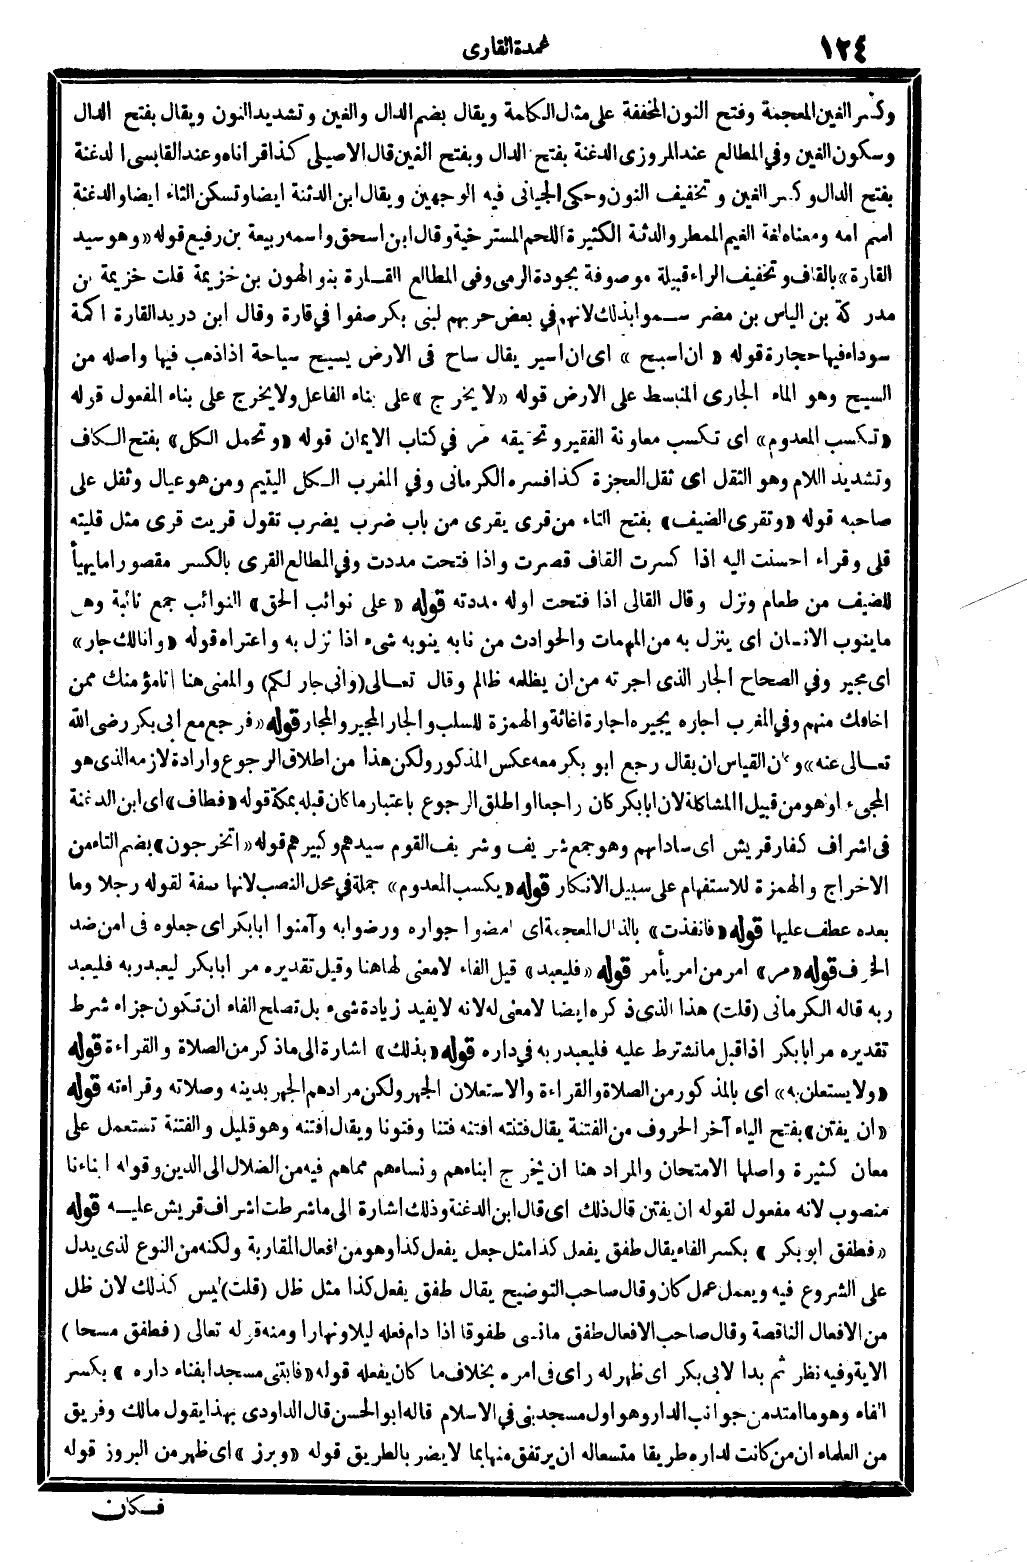 ١٢٤
عمدة القارى
وكسر الغين المعجمة وفتح النون المخففة على مثال الكلمة ويقال بضم الدال والغين وتشديد النون ويقال بفتح الدال
وسكون الغين وفي المطالع عند المروزى الدغنة بفتح الدال وبفتح الغين قال الاصيلى كذا قراناه وعند القابسى الدغنة
بفتح الدال وكسر الغين وتخفيف النون وحكى الجيانى فيه الوجهين ويقال ابن الدثنة ايضا وتسكن الثاء ايضا والدغنة
اسم امه ومعناه لغة الغيم الممطر والدثنة الكثيرة اللحم المسترخية وقال ابن اسحق واسمه ربيعة بن رفيع قوله «وهو سيد
القارة» بالقاف وتخفيف الراء قبيلة موصوفة بجودة الرمى وفى المطالع القارة بنو الهون بن خزيمة قلت خزيمة بن
مدركة بن الياس بن مضر سموا بذلك لانهم في بعض حربهم لبنى بكر صفوا في قارة وقال ابن دريد القارة اكمة
سوداء فيها حجارة قوله «ان اسيح» اى ان اسير يقال ساح فى الارض يسيح سياحة اذا ذهب فيها واصله من
السيح وهو الماء الجارى المنبسط على الارض قوله «لا يخرج» على بناء الفاعل ولا يخرج على بناء المفعول قوله
«تكسب المعدوم» اى تكسب معاونة الفقير وتحقيقه مر في كتاب الايمان قوله «وتحمل الكل» بفتح الكاف
وتشديد اللام وهو الثقل اى ثقل العجزة كذا فسره الكرمانى وفي المغرب الكل اليتيم ومن هو عيال وثقل على
صاحبه قوله «وتقرى الضيف» بفتح التاء من قرى يقرى من باب ضرب يضرب تقول قريت قرى مثل قليته
قلى وقراء احسنت اليه اذا كسرت القاف قصرت واذا فتحت مددت وفي المطالع القرى بالكسر مقصور ما يهيأ
للضيف من طعام ونزل وقال القالى اذا فتحت اوله مددته قوله «على نوائب الحق» النوائب جمع نائبة وهى
ما ينوب الانسان اى ينزل به من المهمات والحوادث من نابه ينوبه شىء اذا نزل به واعتراه قوله «وانالك جار»
اى مجير وفي الصحاح الجار الذى اجرته من ان يظلمه ظالم وقال تعالى (وانى جار لكم) والمعنى هنا انا مؤمنك ممن
اخافك منهم وفي المغرب اجاره يجيره اجارة اغاثة والهمزة للسلب والجار المجير والمجار قوله «فرجع مع ابى بكر رضى الله
تعالى عنه» وكان القياس ان يقال رجع ابو بكر معه عكس المذكور ولكن هذا من اطلاق الرجوع وارادة لازمه الذى هو
المجىء او هو من قبيل المشاكلة لان ابابكر كان راجعا او اطلق الرجوع باعتبار ما كان قبله بمكة قوله «فطاف» اى ابن الدغنة
فى اشراف كفار قريش اى ساداتهم وهو جمع شريف وشريف القوم سيدهم وكبيرهم قوله «اتخرجون» بضم التاء من
الاخراج والهمزة للاستفهام على سبيل الانكار قوله «يكسب المعدوم» جملة في محل النصب لانها صفة لقوله رجلا وما
بعده عطف عليها قوله «فانفذت» بالذال المعجمة اى امضوا جواره ورضوا به وآمنوا ابابكر اى جعلوه فى امن ضد
الخوف قوله «مر» امر من امر يأمر قوله «فليعبد» قيل الفاء لا معنى لها هنا وقيل تقديره مر ابابكر ليعبد ربه فليعبد
ربه قاله الكرمانى (قلت) هذا الذى ذكره ايضا لا معنى له لانه لا يفيد زيادة شىء بل تصلح الفاء ان تكون جزاء شرط
تقديره مر ابابكر اذا قبل ما نشترط عليه فليعبد ربه في داره قوله «بذلك» اشارة الى ما ذكر من الصلاة والقراءة قوله
«ولا يستعلن به» اى بالمذكور من الصلاة والقراءة والاستعلان الجهر ولكن مرادهم الجهر بدينه وصلاته وقراءته قوله
«ان يفتن» بفتح الياء آخر الحروف من الفتنة يقال فتنته افتنه فتنا وفتونا ويقال افتنه وهو قليل والفتنة تستعمل على
معان كثيرة واصلها الامتحان والمراد هنا ان يخرج ابناءهم ونساءهم مماهم فيه من الضلال الى الدين وقوله ابناءنا
منصوب لانه مفعول لقوله ان يفتن قال ذلك اى قال ابن الدغنة وذلك اشارة الى ما شرطت اشراف قريش عليه قوله
«فطفق ابو بكر» بكسر الفاء يقال طفق يفعل كذا مثل جعل يفعل كذا وهو من افعال المقاربة ولكنه من النوع لذى يدل
على الشروع فيه ويعمل عمل كان وقال صاحب التوضيح يقال طفق يفعل كذا مثل ظل (قلت) ليس كذلك لان ظل
من الافعال الناقصة وقال صاحب الافعال طفق مانسى طفوقا اذا دام فعله ليلا ونهارا ومنه قوله تعالى (فطفق مسحا)
الاية وفيه نظر ثم بدا لابى بكر اى ظهر له راى فى امره بخلاف ما كان يفعله قوله «فابتنى مسجدا بفناء داره» بكسر
الفاء وهو ما امتد من جوانب الدار وهو اول مسجد بنى في الاسلام قاله ابو الحسن قال الداودى بهذا يقول مالك وفريق
من العلماء ان من كانت لداره طريقا متسعا له ان يرتفق منها بما لا يضر بالطريق قوله «وبرز» اى ظهر من البروز قوله
فكان